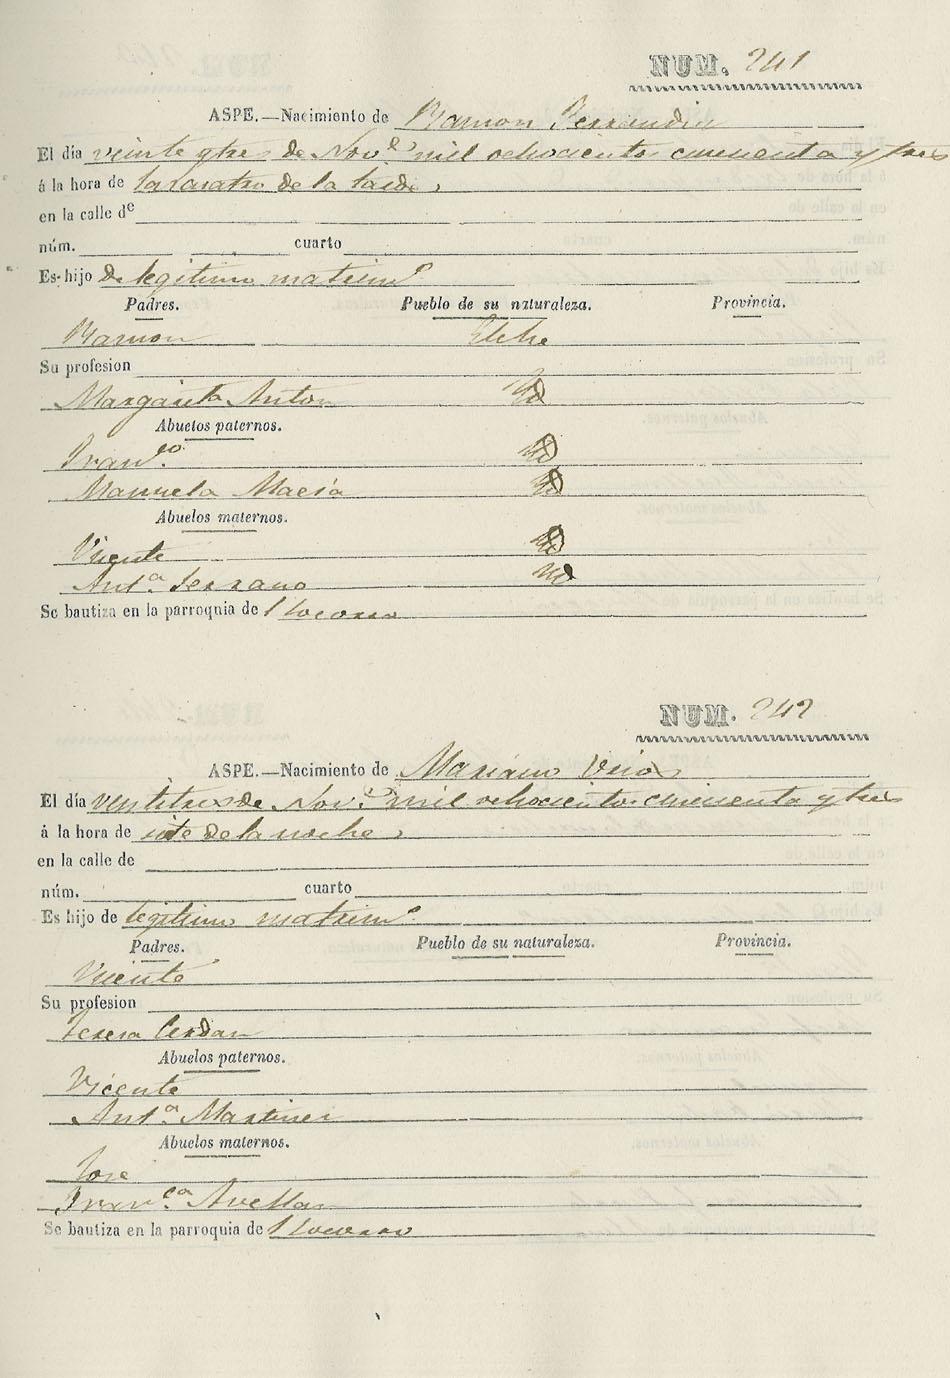 NUM. 241
ASPE.—Nacimiento de Ramon Ferrandiz
El día veinte y tres de Nov.e mil ochocientos cincuenta y tres
á la hora de las cuatro de la tarde
en la calle de
núm. cuarto
Es hijo de legitimo matrim.o
Padres. Pueblo de su naturaleza. Provincia.
Ramon Elche
Su profesion
Margarita Anton Yd
Abuelos paternos.
Fran.co Yd
Manuela Macia Yd
Abuelos maternos.
Vicente Yd
Ant.a Serrano Yd
Se bautiza en la parroquia de l Socorro
NUM. 242
ASPE.—Nacimiento de Mariano
El día ventitres de Nov.e mil ochocientos cincuenta y tres
á la hora de siete de la noche
en la calle de
núm. cuarto
Es hijo de legitimo matrim.o
Padres. Pueblo de su naturaleza. Provincia.
Vicente
Su profesion
Teresa Cerdan
Abuelos paternos.
Vicente
Ant.a Martinez
Abuelos maternos.
Jose
Fran.ca Avellan
Se bautiza en la parroquia de l Socorro